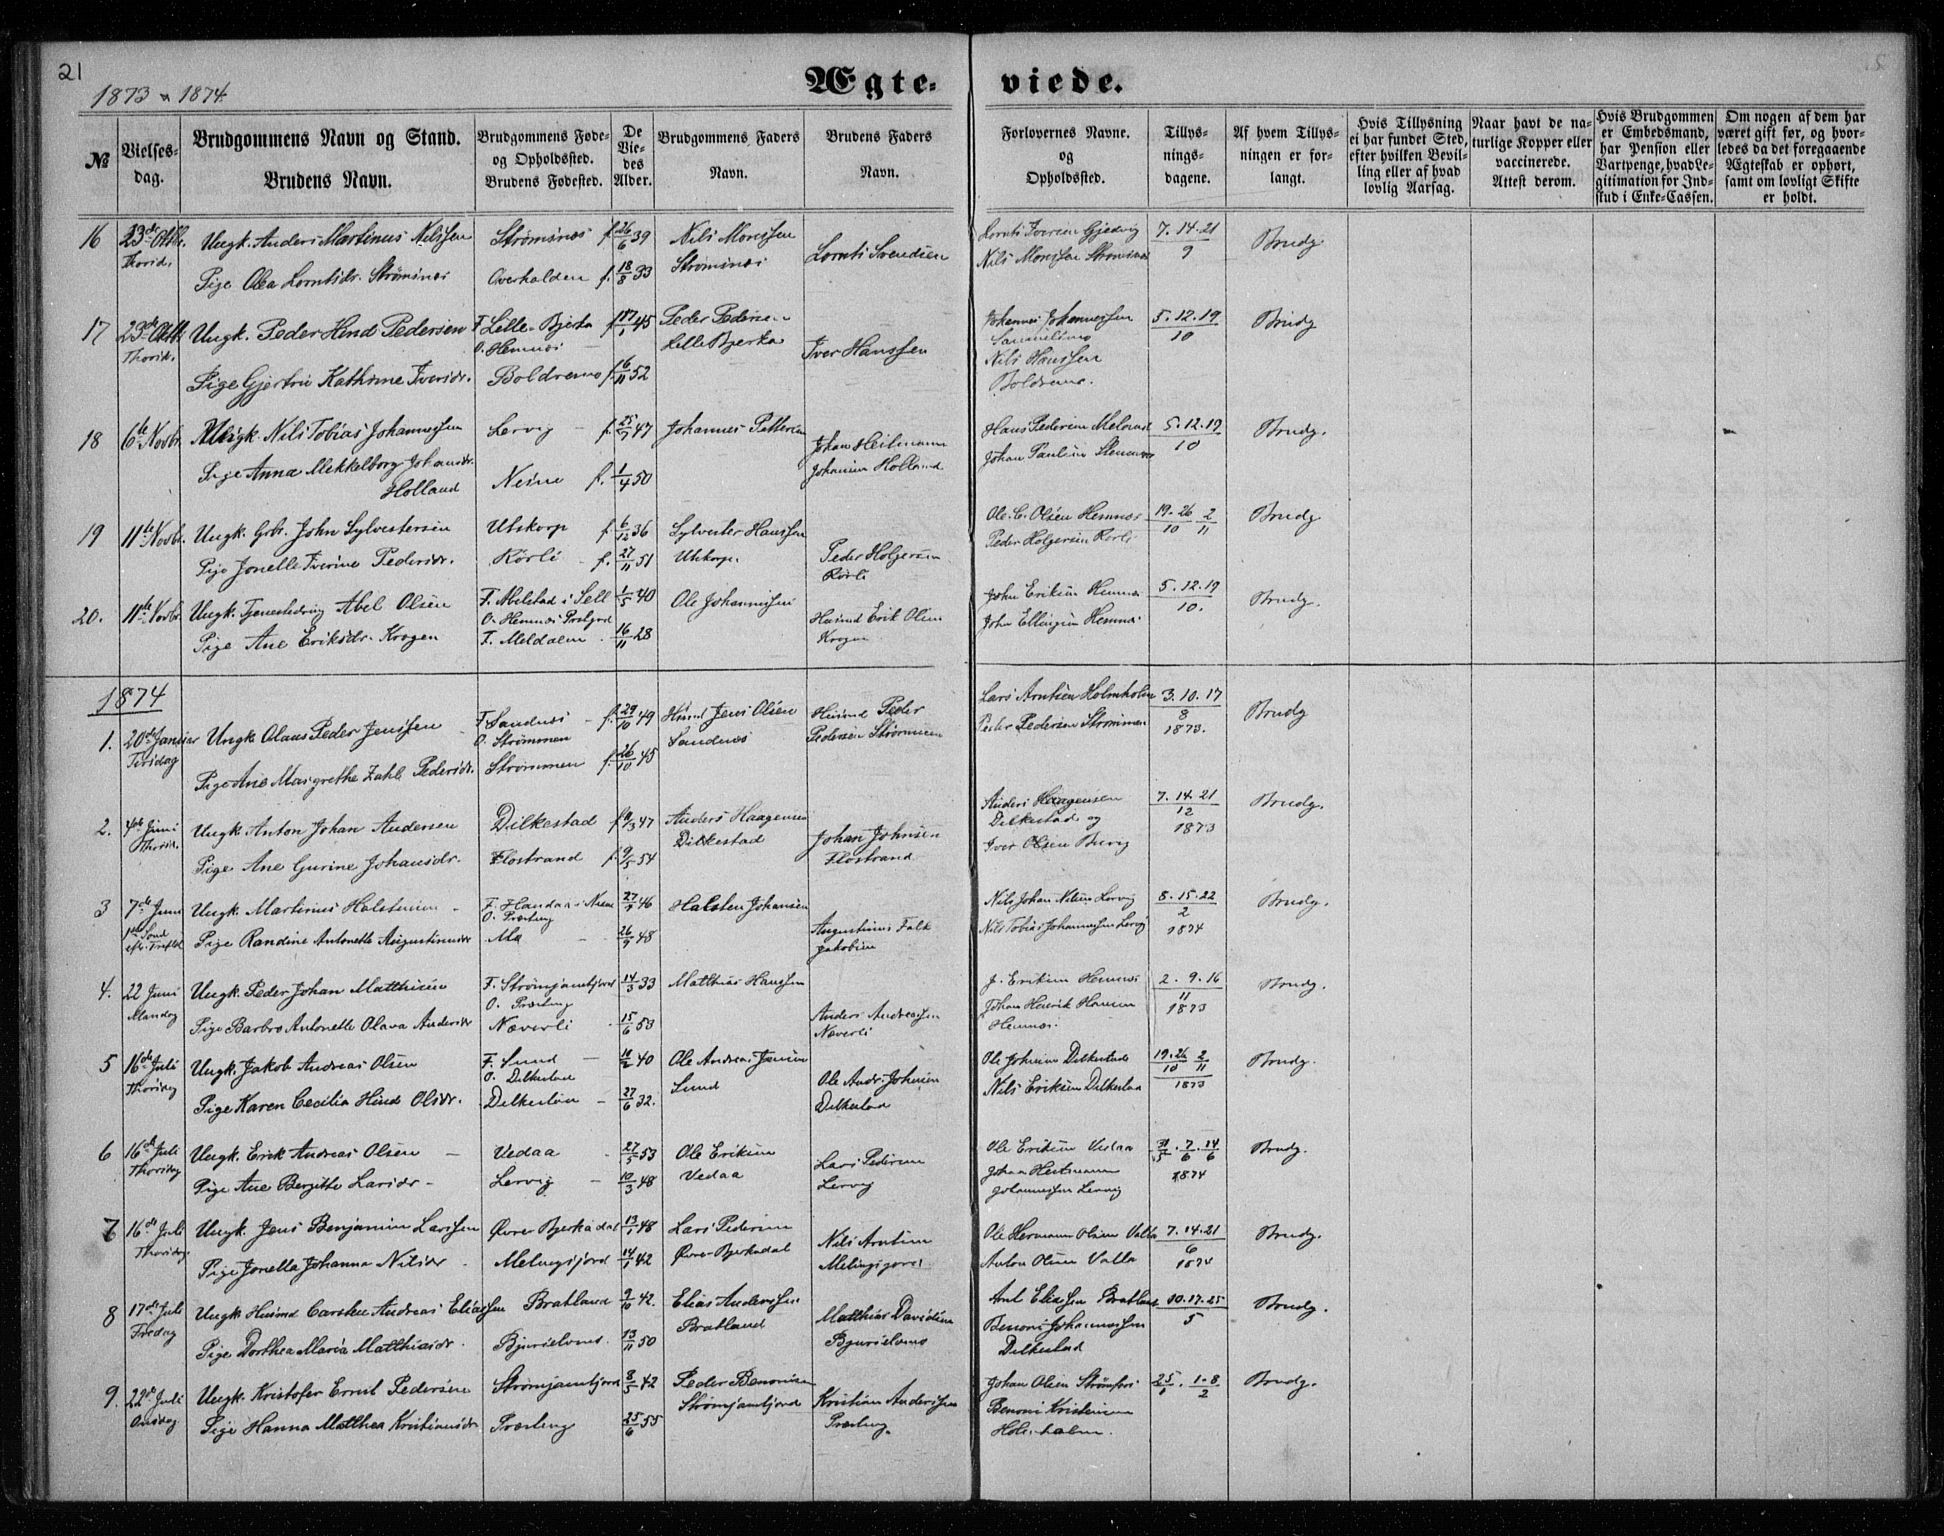 21
1873 & 1874
Ægte- viede.
№
Vielses-
dag.
Brudgommens Navn og Stand.
Brudens Navn.
Brudgommens Føde-
og Opholdssted.
Brudens Fødested.
De
Vie-
des
Alder.
Brudgommens Faders
Navn.
Brudens Faders
Navn.
Forlovernes Navne.
og
Opholdssted.
Tillys-
nings-
dagene.
Af hvem Tillys-
ningen er for-
langt.
Hvis Tillysning
ei har fundet Sted,
efter hvilken Bevil-
ling eller af hvad
lovlig Aarsag.
Naar havt de na-
turlige Kopper eller
vaccinerede.
Attest derom.
Hvis Brudgommen
er Embedsmand,
har Pension eller
Vartpenge, hvad Le-
gitimation for Ind-
skud i Enke-Cassen.
Om nogen af dem har
været gift før, og hvor-
ledes da det foregaaende
Ægteskab er ophørt,
samt om lovligt Skifte
er holdt.
16 23de Oktb. Ungk. Anders Martinus Nilssen Strømsnes f. 26/6 39 Nils Monssen Lornts Svendsen Lornts Iversen 7. 14. 21 Brudg.
Thorsd. Pige Olea Lorntsdr. Strømsnes Overhalden f. 18/8 33 Strømsnes Nils Monssen Strømsnes 9
17 23de Oktb. Ungk. Peder Hind Pedersen F. Lille-Bjerka 45 Peder Pedersen Iver Hanssen Johannes Johannessen 5. 12. 19 Brudg
Thorsd. O. Hemnes Lille Bjerka 10
Nils Hanssen
Pige Gjertru Kathrine Iversdr. Boldremo f. 6/11 52 Boldremo.
18 6te Novbr. Ungk. Nils Tobias Johannessen Lervig f. 25/7 47 Johannes Pettersen Johan Heitmann Hans Pedersen 5. 12. 19 Brudg.
Pige Anna Mekkelborg Johansdr. Johansen Holland Johan Paulsen 10
Holland f. 1/4 50
19 11te Novbr. Ungk. Gbr. John Sylvestersen Utskorp f. 6/12 36 Sylvester Hanssen Ole C. Olsen Hemnes 19. 26/10 2/11 Brudg
Pige Jonelle Iverine Pedersdr. Rörli f. 27/11 51 Utskorp. Peder Holgersen Peder Holgersen Rörli
Rörli
20. 11te Novbr. Ungk. Tjenestedreng Abel Olsen 1/5 40 Ole Johannessen Husmd Erik Olsen John Eriksen Hemnes 5. 12. 19 Brudg.
O. Hemnes Prstgrd Krogen John Ellingsen Hemnes 10.
Pige Ane Eriksdr. Krogen F. Meldalen 16/11 28
1874
1. 20de Januar Ungk. Olaus Peder Jenssen F. Sandnes f. 29/10 49 Husmd Jens Olsen Husmd Peder Lars Arntsen Holmholm 3. 10. 17 Brudg
Tirsdag O. Strømmen Sandnes Pedersen Strømmen Peder Pedersen Strømmen 8
1873.
Pige Ane Margrethe Zahl Pedersdr. Strømmen f. 26/10 45
2. 4de Juni Ungk. Anton Johan Andersen Dilkestad 47 Anders Haagensen Johan Johnsen Anders Haagensen 7. 14. 21 Brudg.
Thorsd. Dilkestad Flostrand Dilkestad og 12
1873
Pige Ane Gurine Johansdr. Flostrand f. 9/5 54 Iver Olsen
3 7de Juni Ungk. Martinus Halstensen 46 Halsten Johansen Augustinus Falk Nils Johan Nilsen Lervig 8. 15. 22 Brudg.
1ste Sønd O. Præsteng Jakobsen 2
eft. Trefold. Pige Randine Antonette Augustinusdr Mo 48 Nils Tobias Johannessen Lervig 1874
4. 22 Juni Ungk. Peder Johan Matthisen F. Strømjamtjord 14/3 33 Matthias Hanssen Anders Andreassen J. Eriksen Hemnes 2. 9. 16 Brudg.
Mandag O. Præsteng Næverli Johan Henrik Hansen 11
1873
Pige Barbro Antonette Olava Andersdr Næverli 15/6 53 Hemnes.
5 16de Juli Ungk. Jakob Andreas Olsen F. Sund 40 Ole Andreas Jensen Ole Andr. Johnsen Ole Johnsen Dilkestad 19. 26/10 2/11 Brudg.
Thorsdag O. Dilkestad Sund Dilkestad Nils Eriksen Dilkestad 1873
Pige Karen Cecilia Hind Olsdr. Dilkestad 27/6 32.
6 16de Juli Ungk. Erik Andreas Olsen Vedaa 27/5 53 Ole Eriksen Lars Pedersen Ole Eriksen Vedaa 31/5 . 7/6 . 14/6 Brudg.
Thorsdag Pige Ane Bergitte Larsdr Lervig 10/3 48 Vedaa Lervig Johan Heitmann 1874
Johannessen Lervig
7 16de Juli Ungk. Jens Benjamin Larssen Øvre Bjerkadal 13/1 48 Lars Pedersen Nils Arntsen Ole Hermann Olsen Valla 7. 14. 21 Brudg.
Thorsdag Øvre-Bjerkadal 6
Pige Jonella Johanna Nilsdr Melingsjord 14/1 42 Anton Olsen Valla 1874
8 17de Juli Ungk Husmd Carsten Andreas Eliassen Bratland 9/10 42. Elias Anderssen Matthias Davidsen Ant. Eliassen Bratland 10. 17. 25 Brudg.
Fredag Bratland Benoni Johannessen 5
Pige Dorthea Maria Matthiasdr. Bjurselvnes 13/11 50 Bjurselvnes Dilkestad
9. 22de Juli Ungk. Kristofer Ernst Pedersen Strømjamtjord 8/5 42 Peder Benonisen Kristian Anderssen Johan Olsen 25/1 . 1. 8/2 Brudg.
Onsdag Strømjamtjord Præsteng Benoni Kristensen
Pige Hanna Matthea Kristiansdr Præsteng 25/6 55